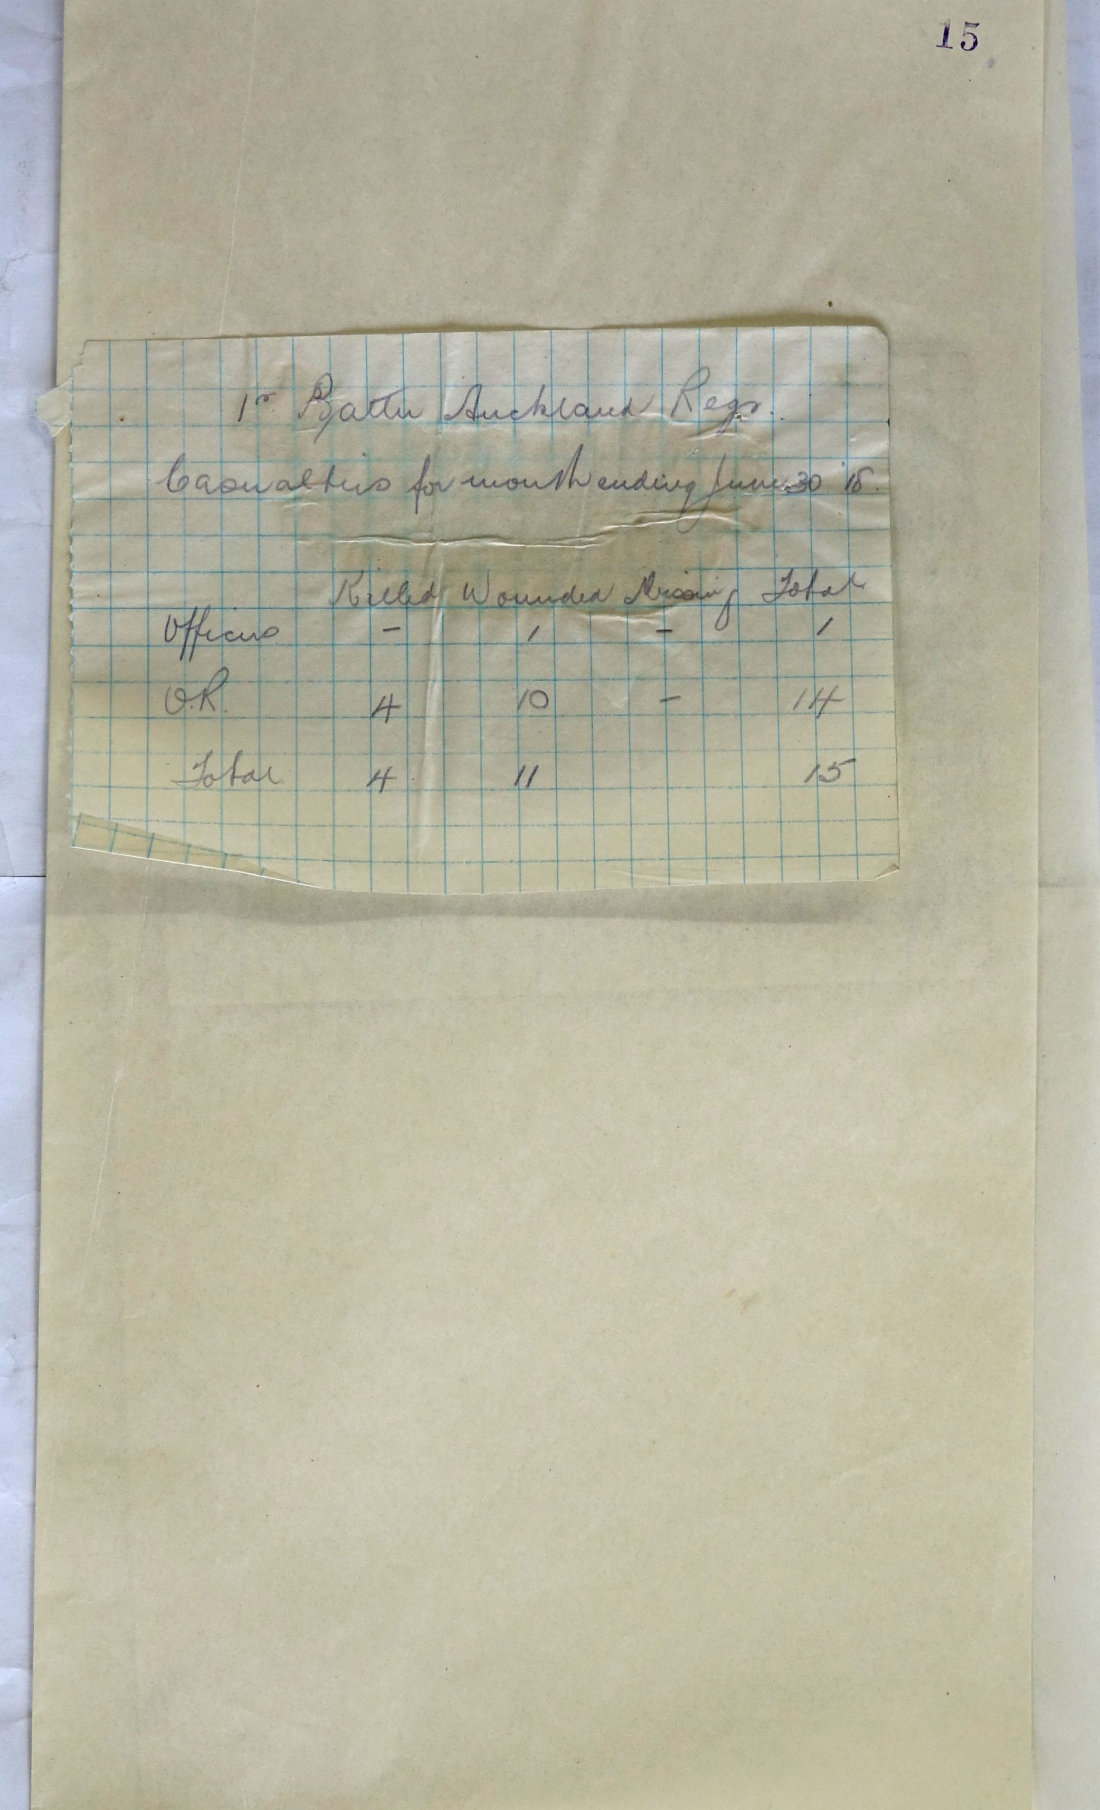 15
1st Battn Auckland Regt.
Casualties for month ending June 30 '18.
Killed Wounded Missing Total
Officers - 1 - 1
O.R. 4 10 - 14
Total 4 11 15